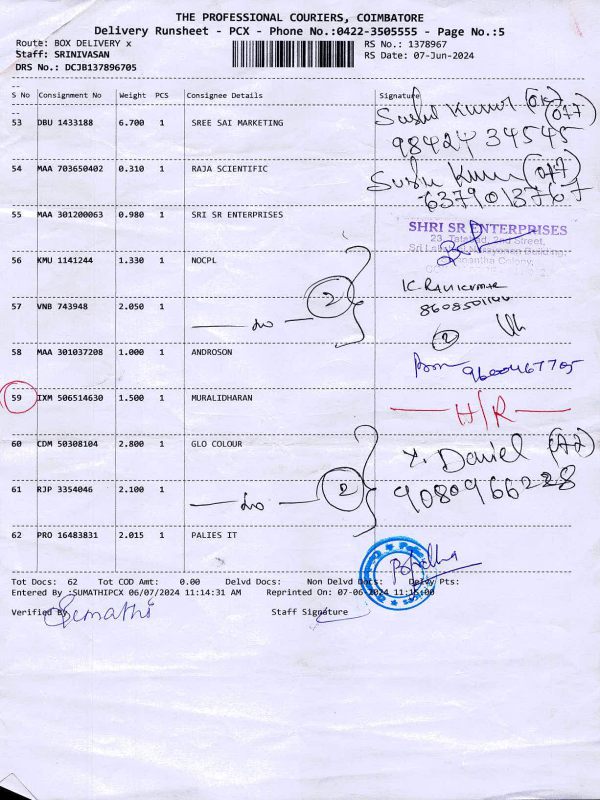 THE PROFESSIONAL COURIERS, COIMBATORE
Delivery Runsheet - PCX - Phone No.:0422-3505555 - Page No.:5
Route: BOX DELIVERY x
RS No.: 1378967
Staff: SRINIVASAN
RS Date: 07-Jun-2024
DRS No.: DCJB137896705
S No Consignment No Weight PCS Consignee Details Signature
53 DBU 1433188 6.700 1 SREE SAI MARKETING
98424 34545
54 MAA 703650402 0.310 1 RAJA SCIENTIFIC
6379013767
55 MAA 301200063 0.980 1 SRI SR ENTERPRISES
SHRI SR ENTERPRISES
56 KMU 1141244 1.330 1 NOCPL
2
K. RAVIKUMAR
57 VNB 743948 2.050 1
do
2
58 MAA 301037208 1.000 1 ANDROSON
9600467705
59 IXM 506514630 1.500 1 MURALIDHARAN
H/R
60 CDM 50308104 2.800 1 GLO COLOUR
Y. Daniel
61 RJP 3354046 2.100 1
do
2
9080966228
62 PRO 16483831 2.015 1 PALIES IT
Tot Docs: 62 Tot COD Amt: 0.00 Delvd Docs: Non Delvd Docs: Delvy Pts:
Entered By :SUMATHIPCX 06/07/2024 11:14:31 AM Reprinted On: 07-06-2024 11:15:00
Verified By Staff Signature
Sumathi